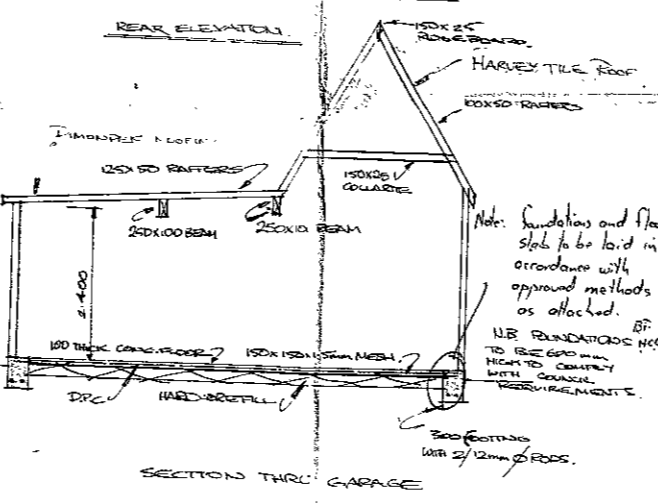 REAR ELEVATION.
150X25
RIDGEBOARD.
HARVEY TILE ROOF
100X50 RAFTERS
125X50 RAFTERS
150X25
COLLARTIE
250X100 BEAM
250X10 BEAM
2.400
Note: foundations and
slab to be laid in
accordance with
approved methods
as attached.
N.B. FOUNDATIONS
TO BE 600 mm
HIGH TO COMPLY
WITH COUNCIL
REQUIREMENTS.
100 THICK CONC. FLOOR
150X150X1.5mm MESH.
D.P.C
HARDCOREFILL
300 FOOTING
WITH 2/12mm Ø RODS.
SECTION THRU GARAGE